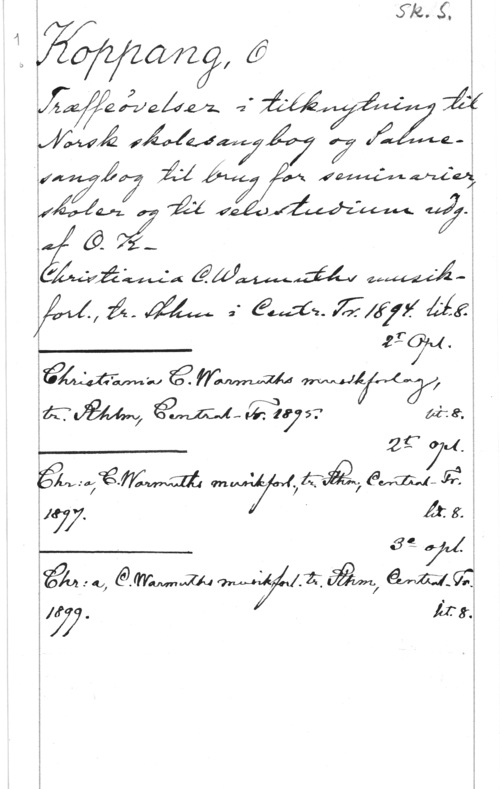 Sk. S.
1
Koppang, O
Træffeövelser i tilknytning til
Norsk skolesangbog og Salme-
sangbog til brug for seminarier,
skoler og til selvstudium udg.
af O. K-
Christiania C. Warmuths musik-
forl., tr. Sthm i Centr. Tr. 1894. lit. 8.
2t Opl.
Christiania C. Warmuths musikforlag,
tr. Sthlm, Central-Tr. 1895. lit. 8.
2t opl.
Chr:a, C. Warmuths musikforl., tr. Sthm, Central-Tr.
1897. lit. 8.
3e opl.
Chr:a, C. Warmuths musikforl. tr. Sthm, Central-Tr.
1899. lit. 8.